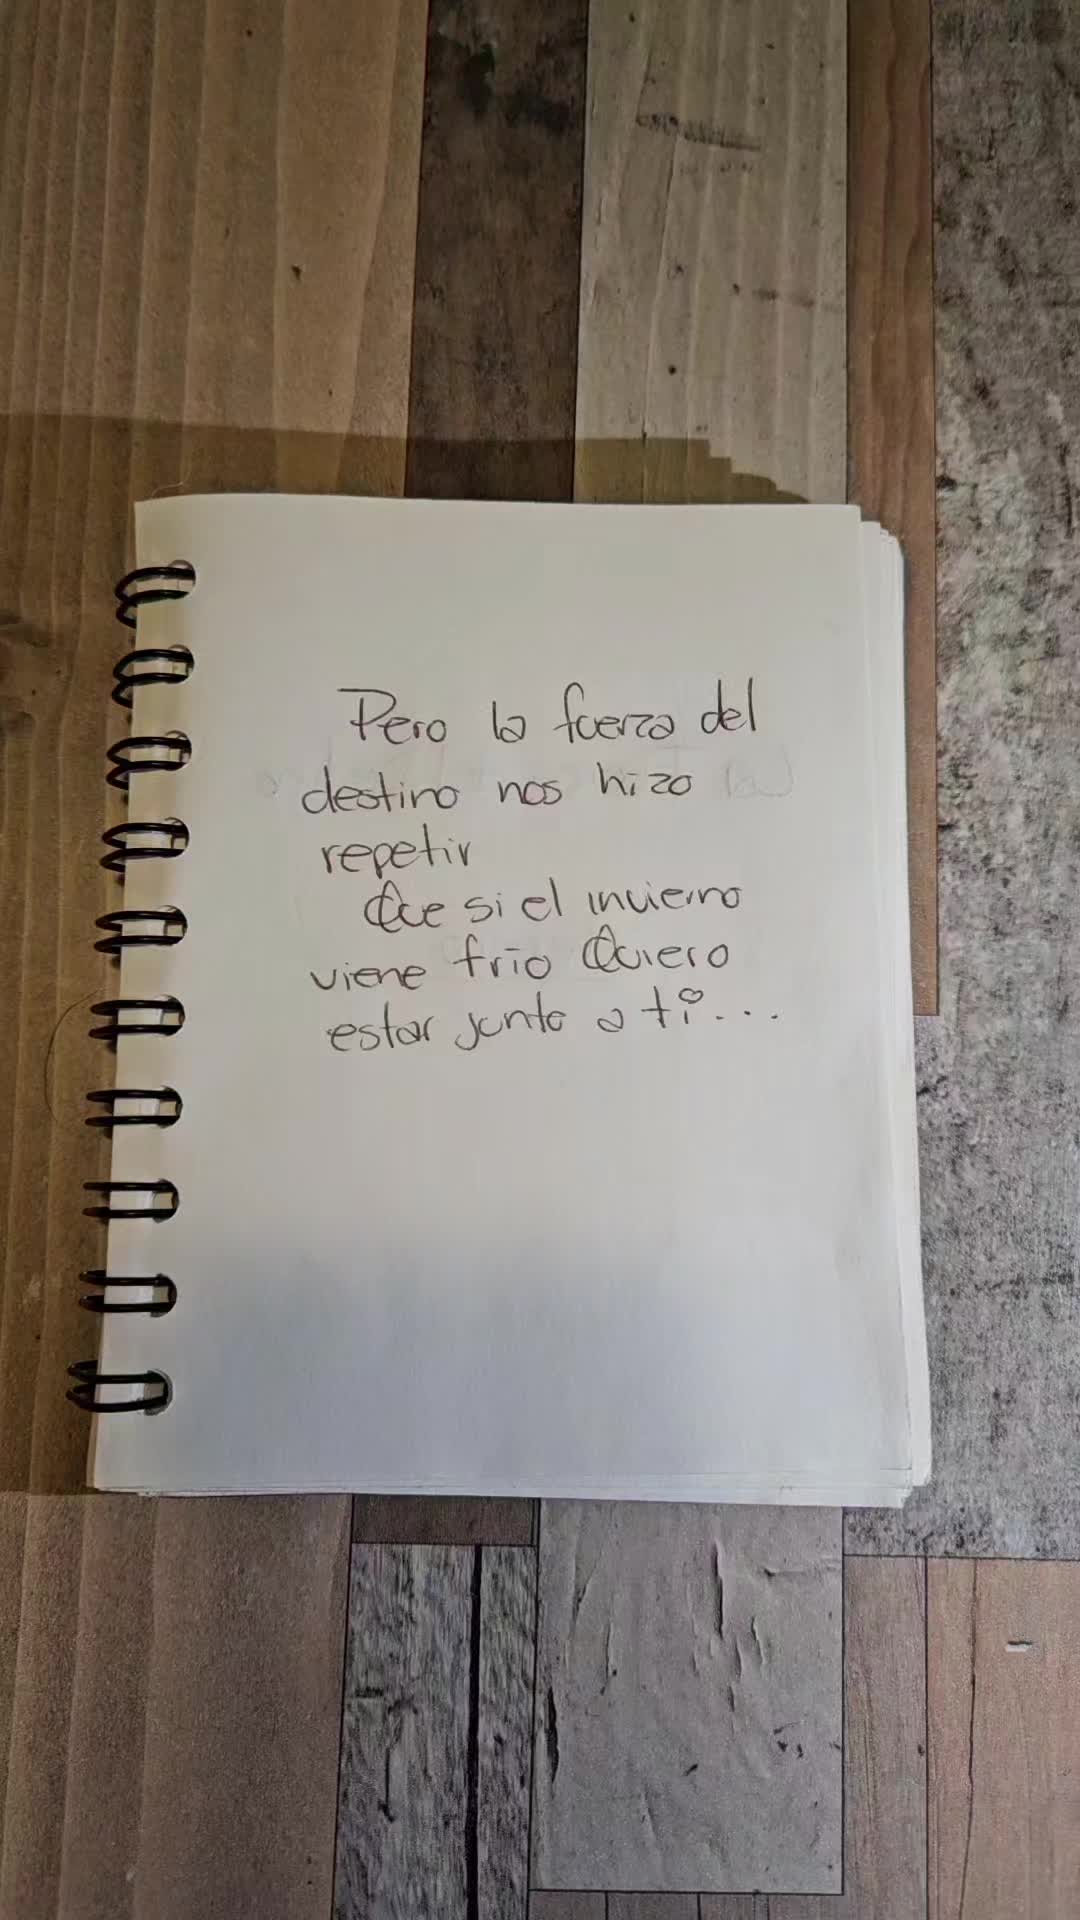 Pero la fuerza del
destino nos hizo
repetir
Que si el invierno
viene frío Quiero
estar junto a ti...